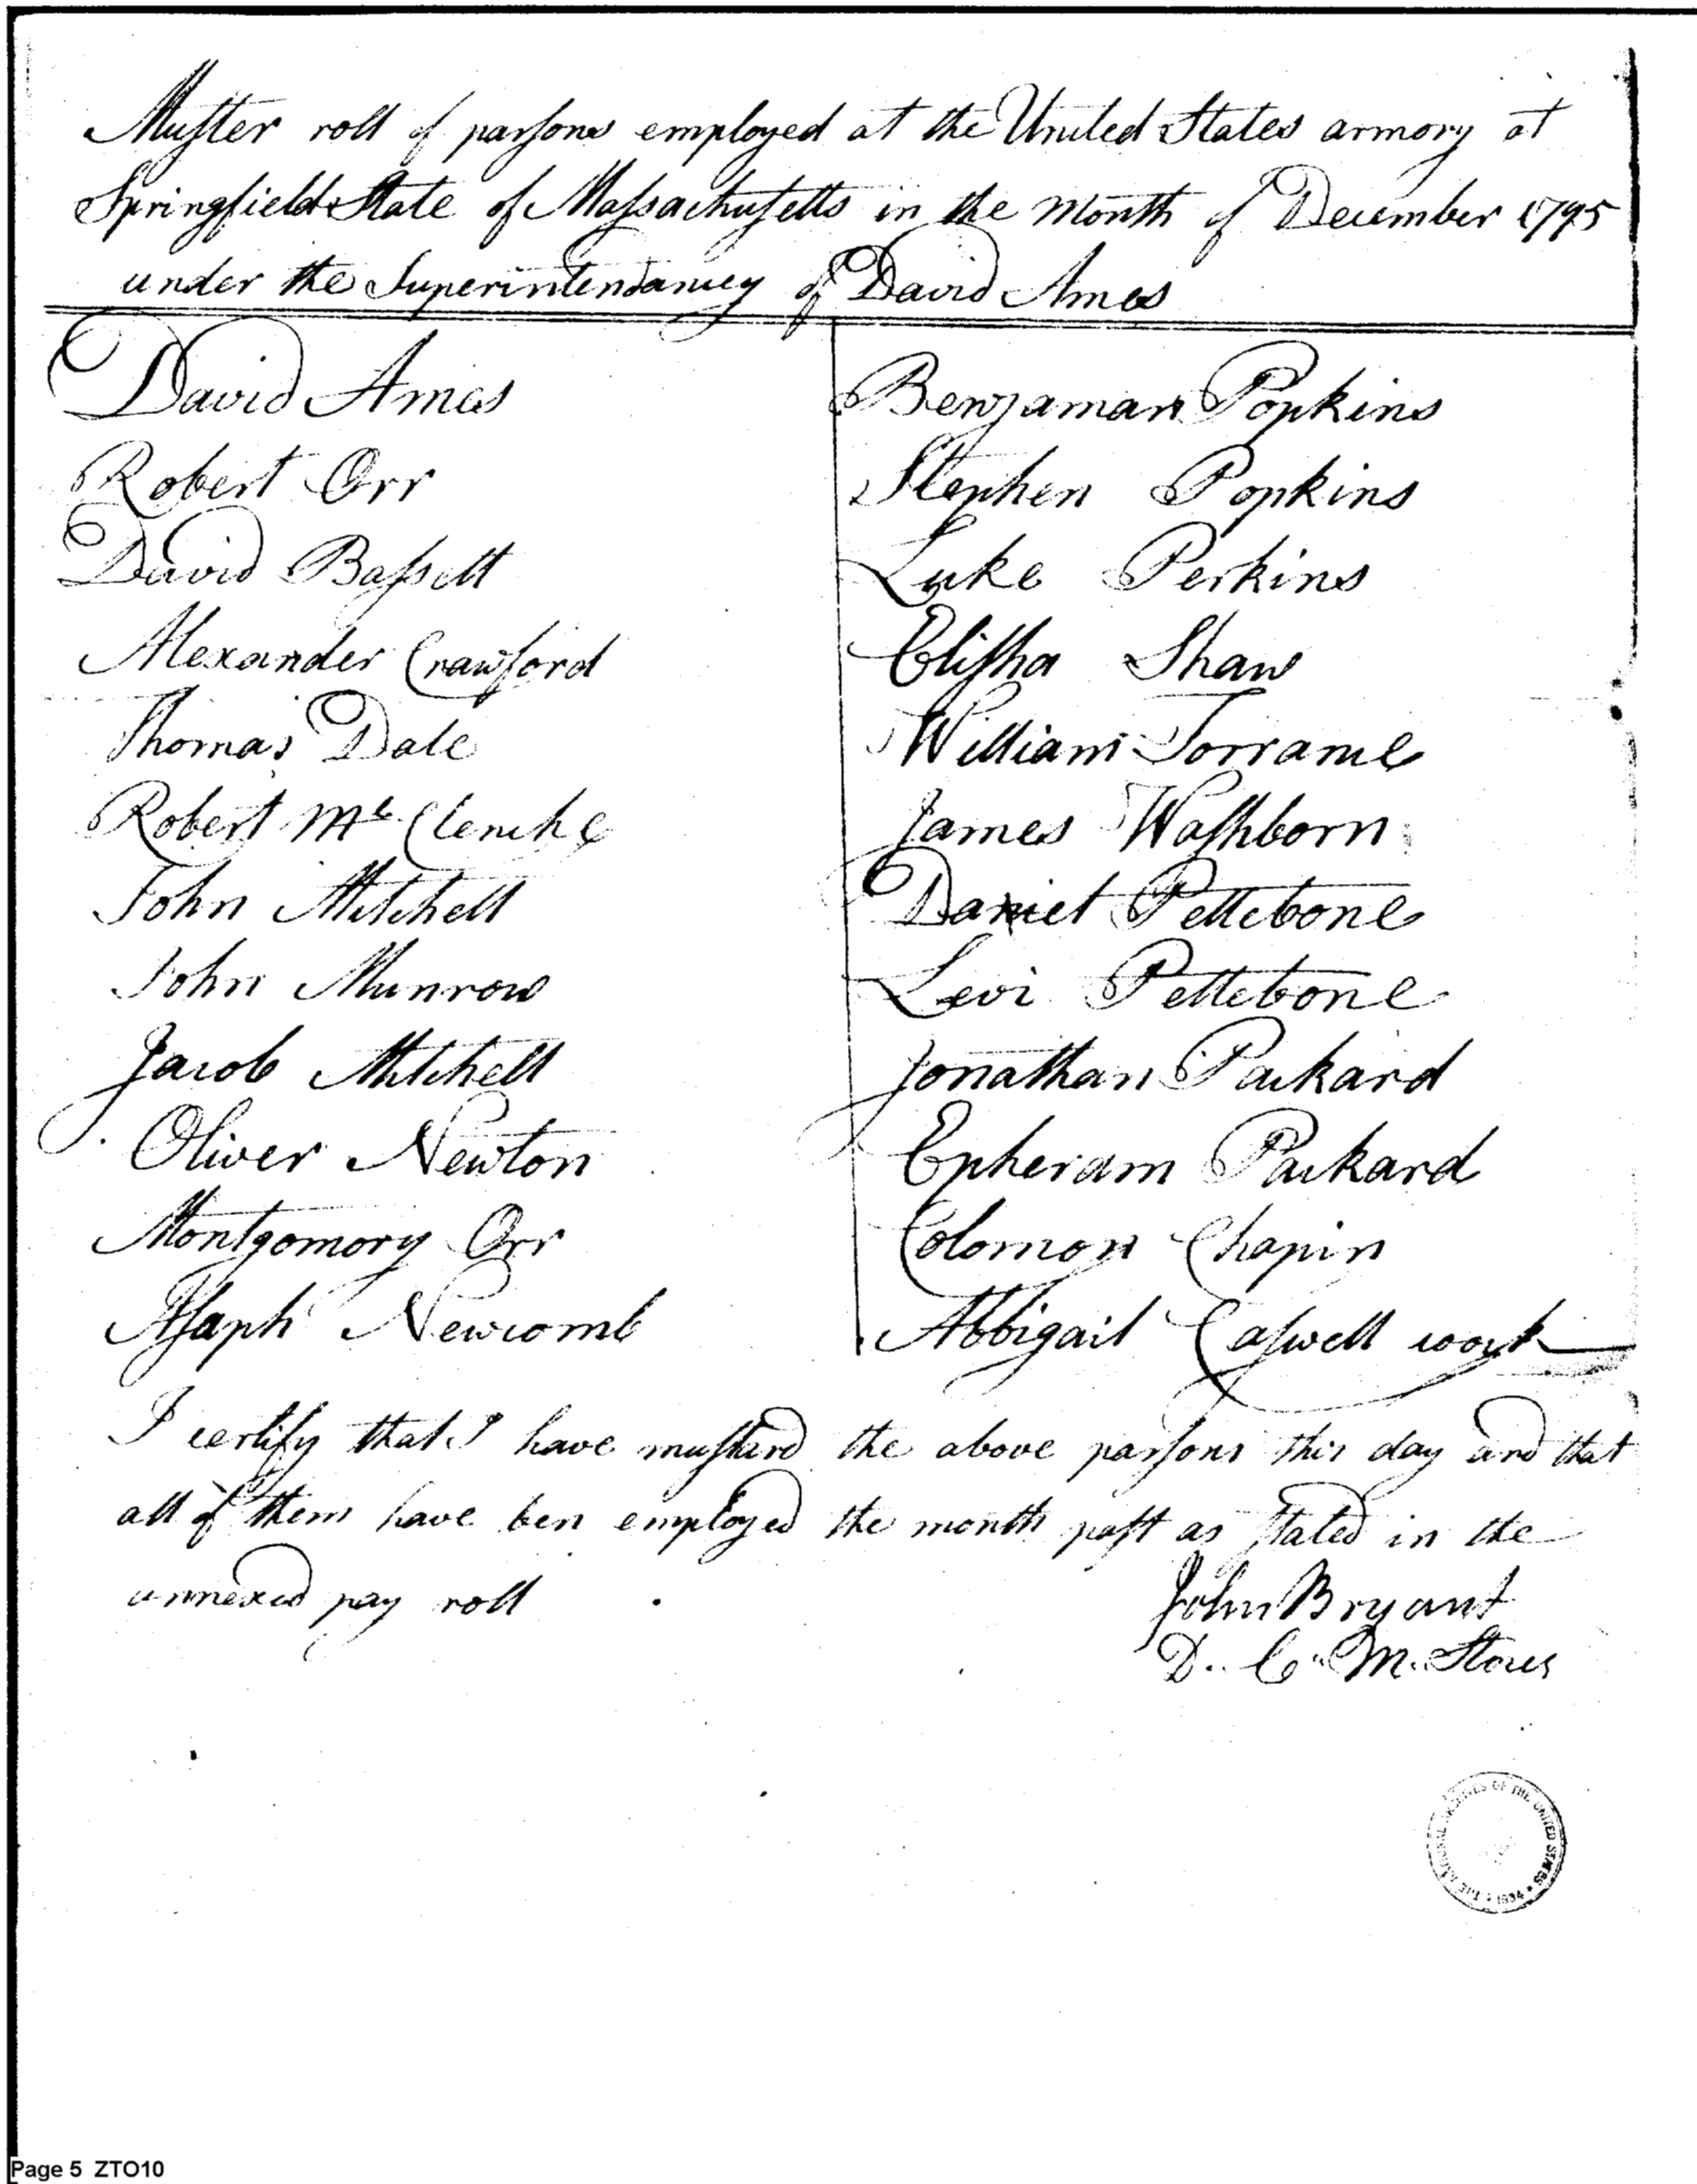 Muster roll of parsons employed at the United States armory at
Springfield State of Massachusetts in the Month of December 1795
under the Superintendancy of David Ames
David Ames
Robert Orr
David Bassett
Alexander Crawford
Thomas Dale
Robert Mc Clenche
John Mitchell
John Munrow
Jacob Mitchell
Oliver Newton
Montgomory Orr
Asaph Newcomb
Benjaman Popkins
Stephen Popkins
Luke Perkins
Elisha Shaw
William Torrance
James Washborn
Daniel Pettebone
Levi Pettebone
Jonathan Packard
Epheram Packard
Colomon Chapin
Abbigail Caswell work
I certify that I have mustard the above parsons this day and that
all of them have ben employed the month past as stated in the
annexed pay roll
John Bryant
D. C. M. Stores
THE NATIONAL ARCHIVES OF THE UNITED STATES 1934
Page 5 ZTO10